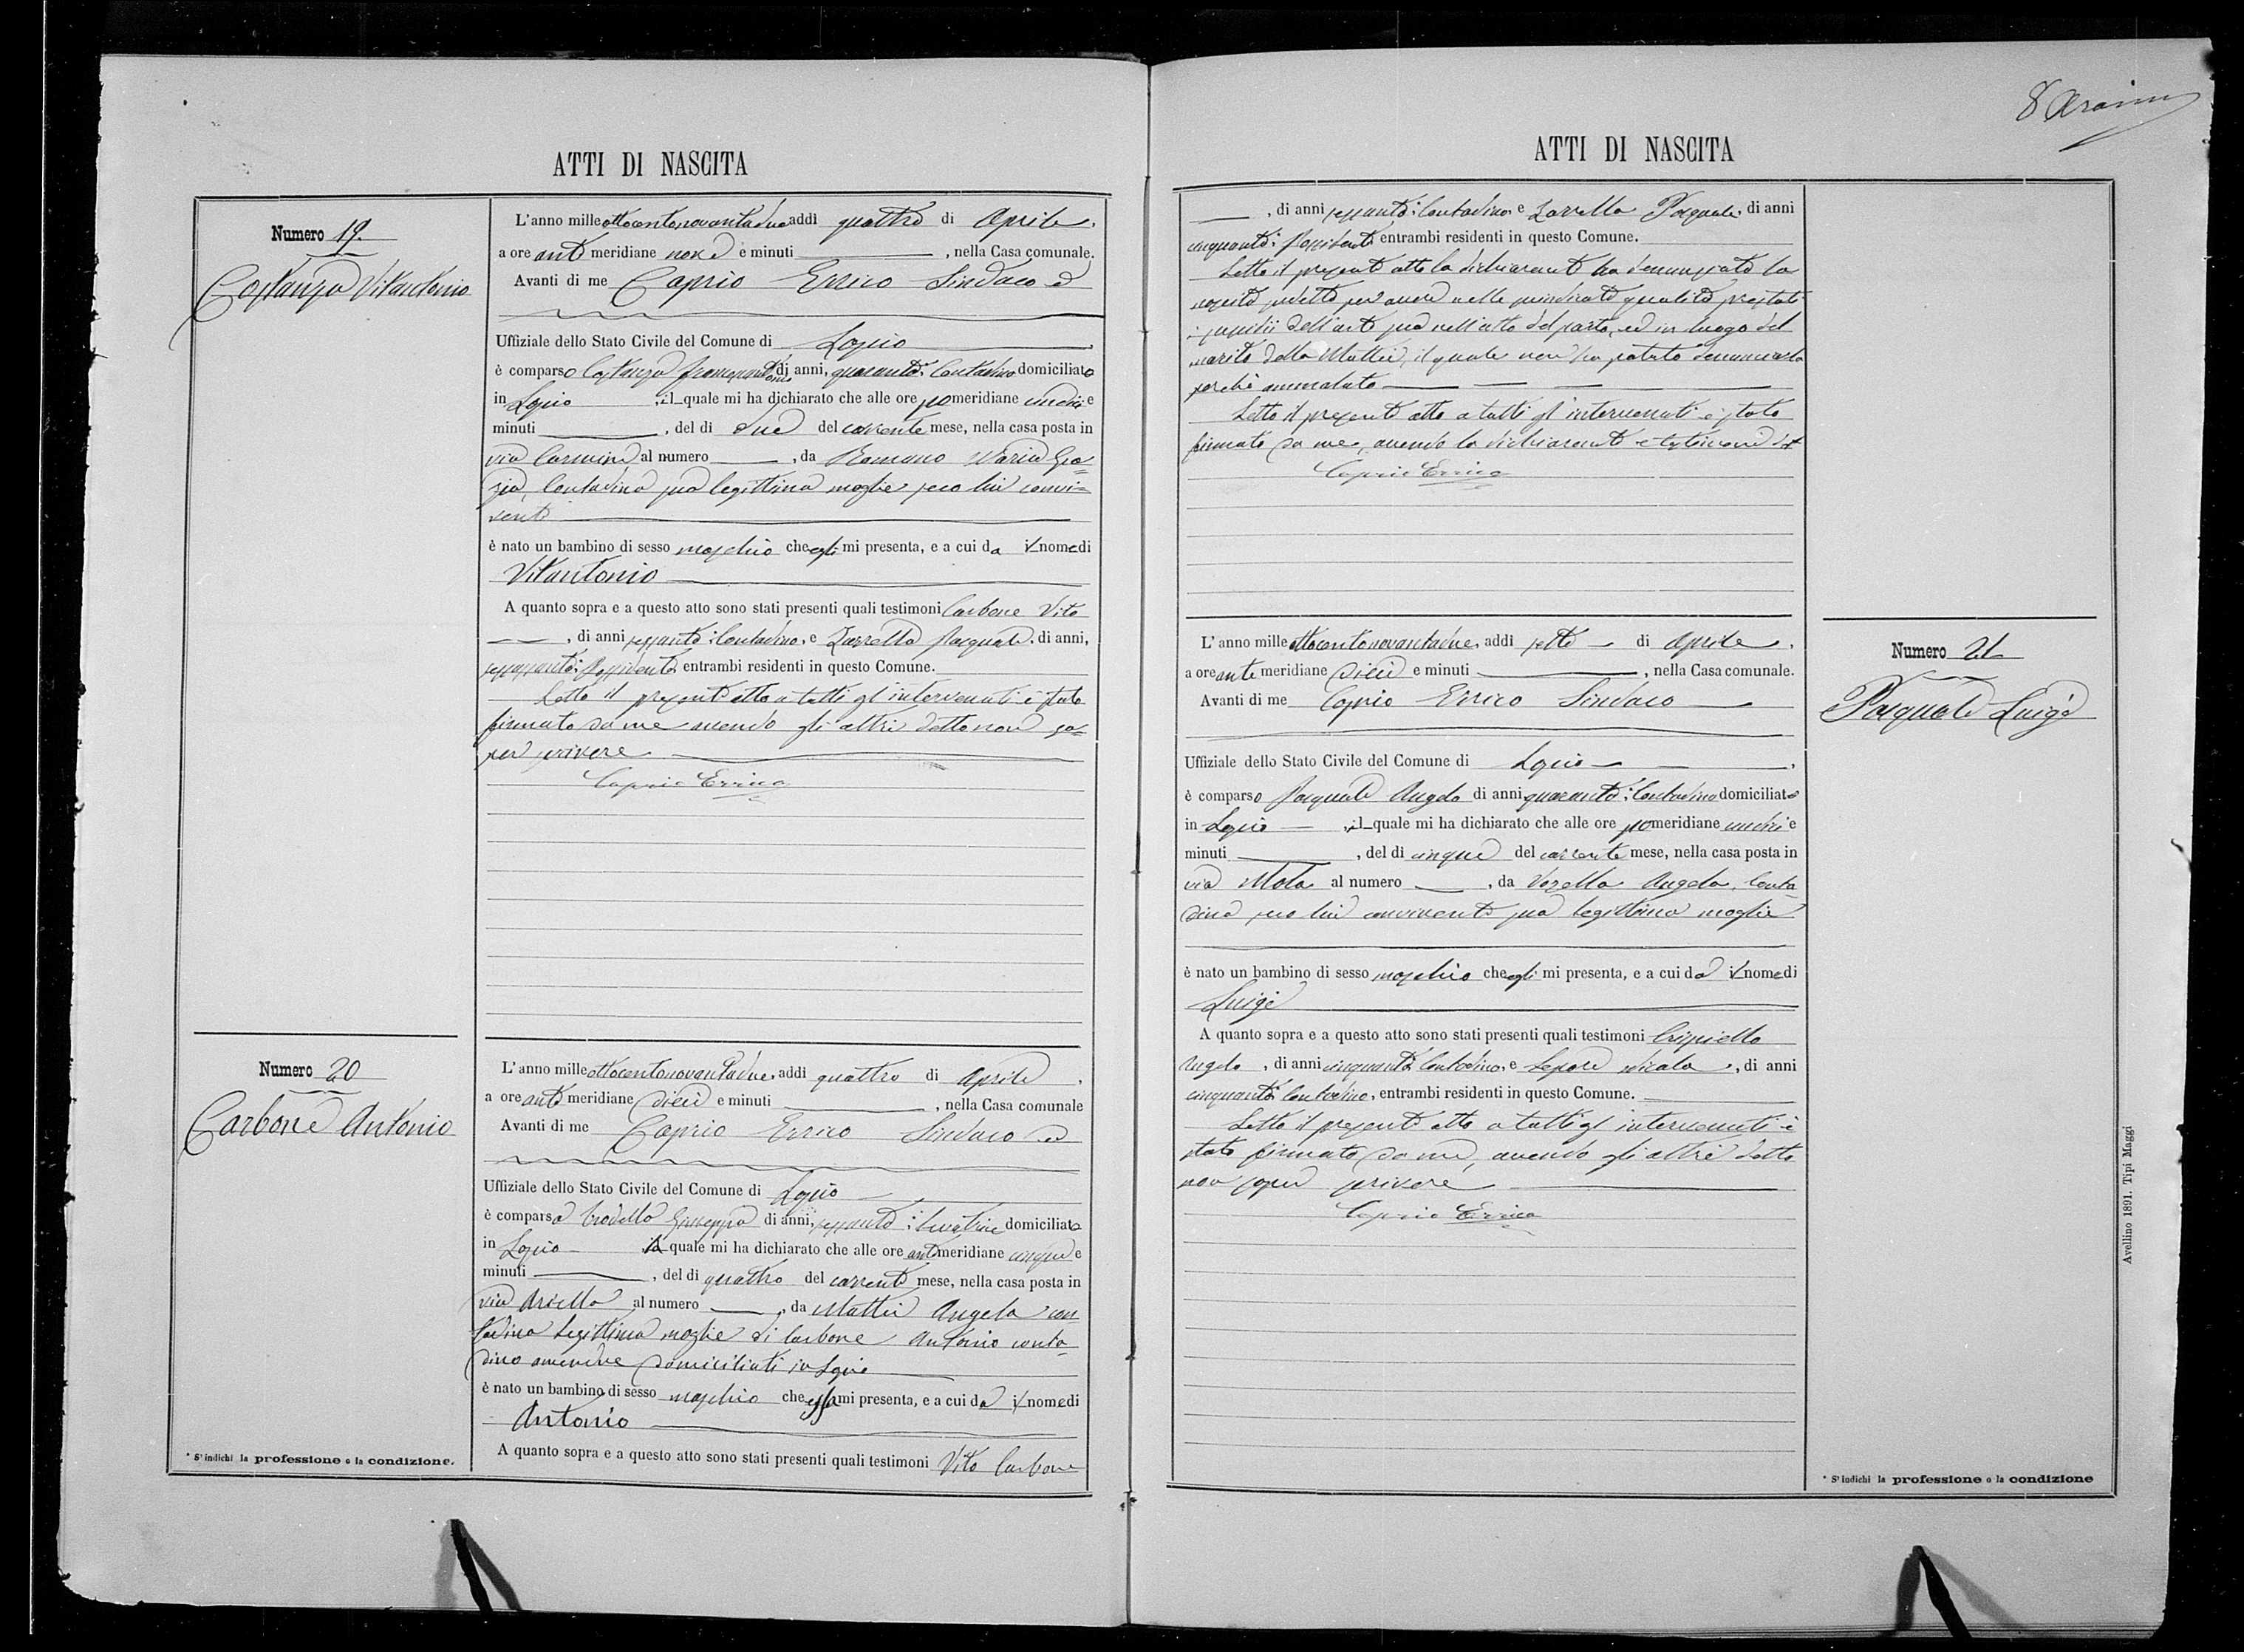 ATTI DI NASCITA
Numero 19.
Costanza Vitantonio
L'anno milleottocentonovantadue addì quattro di Aprile,
a ore ante meridiane nove e minuti , nella Casa comunale.
Avanti di me Caprio Errico Sindaco ed
Uffiziale dello Stato Civile del Comune di Lapio,
è comparso Costanza di anni, quaranta; Contadino domiciliato
in Lapio , il quale mi ha dichiarato che alle ore pomeridiane undici e
minuti , del dì due del corrente mese, nella casa posta in
via Carmine al numero , da Romano Maria Gra=
zia, Contadina sua legittima moglie seco lui convi=
vente
è nato un bambino di sesso maschio che egli mi presenta, e a cui da il nome di
Vitantonio
A quanto sopra e a questo atto sono stati presenti quali testimoni Carbone Vito
, di anni sessanta; Contadino, e Zarrella Pasquale, di anni,
Possidente entrambi residenti in questo Comune.
Letto il presente atto a tutti gl'intervenuti è stato
firmato da me avendo gli altri detto non sa=
per scrivere
Caprio Errico
Numero 20
Carbone Antonio
L'anno milleottocentonovantadue, addì quattro di Aprile,
a ore ante meridiane dieci e minuti , nella Casa comunale
Avanti di me Caprio Errico Sindaco ed
Uffiziale dello Stato Civile del Comune di Lapio
è comparsa Giuseppa di anni, sessanta; Levatrice domiciliata
in Lapio la quale mi ha dichiarato che alle ore antimeridiane cinque e
minuti , del dì quattro del corrente mese, nella casa posta in
via Ariella al numero , da Mattei Angela con=
tadina legittima moglie di Carbone Antonio conta=
dino amendue domiciliati in Lapio
è nato un bambino di sesso maschio che essa mi presenta, e a cui da il nome di
Antonio
A quanto sopra e a questo atto sono stati presenti quali testimoni Vito Carbone
* S'indichi la professione o la condizione.
8
ATTI DI NASCITA
, di anni sessanta; Contadino e Zarrella Pasquale, di anni
cinquanta; Possidente entrambi residenti in questo Comune.
Letto il presente atto la dichiarante ha denunziato la
nascita suddetta per avere nelle qualità prestati
i sussidii dell'arte sua nell'atto del parto, ed in luogo del
marito della Mattei, il quale non ha potuto denunciarla
perchè ammalato
Letto il presente atto a tutti gl'intervenuti è stato
firmato da me, avendo la dichiarante e testimoni
Caprio Errico
Numero 21
Pasquale Luigi
L'anno milleottocentonovantadue, addì sette di Aprile,
a ore ante meridiane dieci e minuti , nella Casa comunale.
Avanti di me Caprio Errico Sindaco
Uffiziale dello Stato Civile del Comune di Lapio,
è comparso Pasquale Angelo di anni quaranta; Contadino domiciliato
in Lapio , il quale mi ha dichiarato che alle ore pomeridiane undici e
minuti , del dì cinque del corrente mese, nella casa posta in
via Mola al numero , da Angela, Conta
dina seco lui convivente sua legittima moglie
è nato un bambino di sesso maschio che egli mi presenta, e a cui da il nome di
Luigi
A quanto sopra e a questo atto sono stati presenti quali testimoni
Angelo, di anni cinquanta Contadino, e Lepore Nicola, di anni
cinquanta; Contadino, entrambi residenti in questo Comune.
Letto il presente atto a tutti gl'intervenuti è
stato firmato da me, avendo gli altri detto
non saper scrivere
Caprio Errico
* S'indichi la professione o la condizione
Avellino 1891. Tipi Maggi